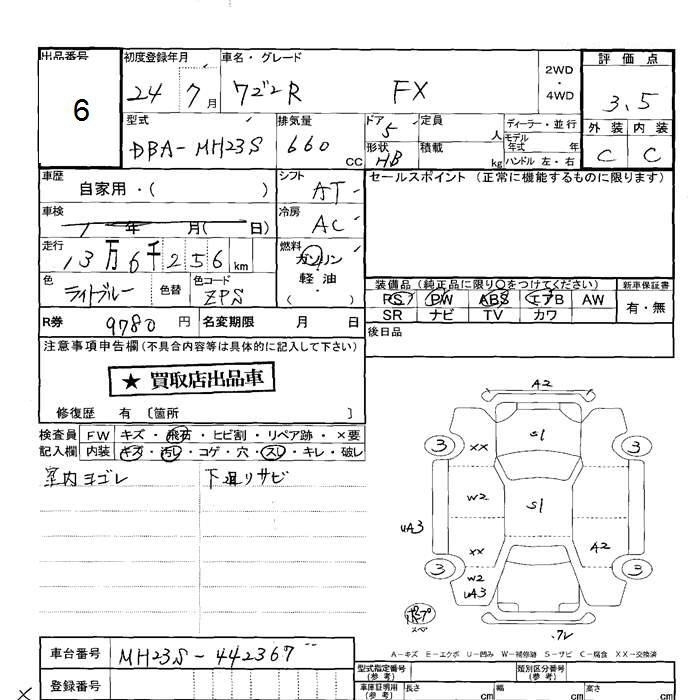 出品番号
6
初度登録年月
24 7月
車名・グレード
ワゴンR FX
2WD
・
4WD
評価点
3.5
外装 内装
C C
型式
DBA-MH23S
排気量
660 cc
ドア 5
形状 HB
定員 人
積載 kg
ディーラー・並行
モデル年式 年
ハンドル 左・右
車歴
自家用・( )
シフト
AT
セールスポイント (正常に機能するものに限ります)
車検
年 月( 日)
冷房
AC
走行
13万6千256km
燃料
ガソリン
軽・油
( )
色
ライトブルー
色替
色コード
ZPS
装備品 (純正品に限り○をつけてください)
PS PW ABS エアB AW
SR ナビ TV カワ
新車保証書
有・無
R券 9780円 名変期限 月 日
後日品
注意事項申告欄(不具合内容等は具体的に記入して下さい)
★ 買取店出品車
修復歴 有 〔箇所 〕
検査員記入欄
FW キズ・飛石・ヒビ割・リペア跡・×要
内装 キズ・汚レ・コゲ・穴・スレ・キレ・破レ
室内ヨゴレ
下廻リサビ
A2
S1
3 XX 3
W2
S1
UA3
XX
A2
3 W2 3
UA3
スペ
A-キズ E-エクボ U-凹み W-補修跡 S-サビ C-腐食 XX-交換済
車台番号 MH23S-442367
登録番号
型式指定番号(参考)
類別区分番号(参考)
車庫証明用(参考)
長さ cm
幅 cm
高さ cm